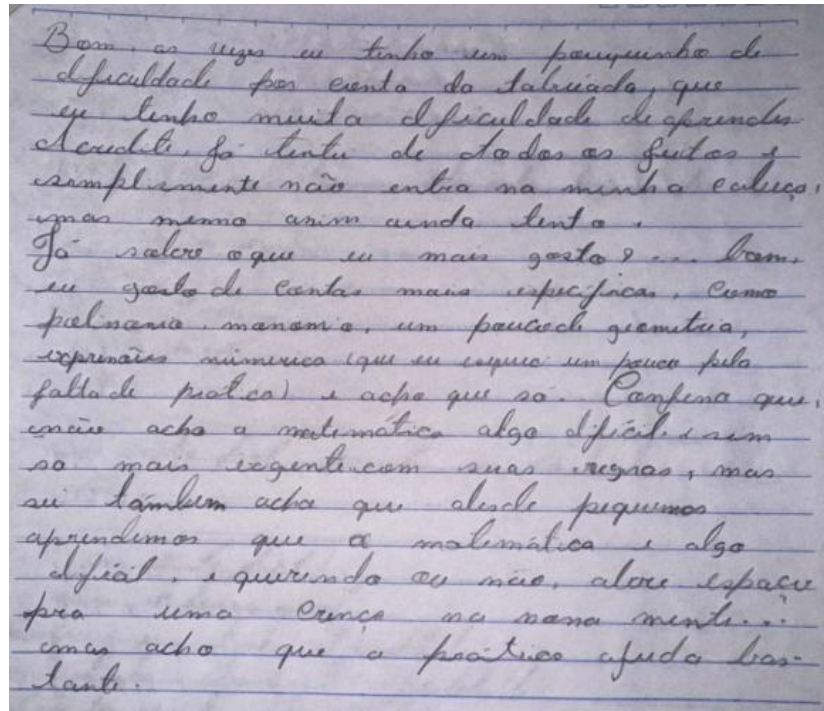 Bom, as vezes eu tenho um pouquinho de
dificuldade por conta da tabuada, que
eu tenho muita dificuldade de aprender
Acredite, já tentei de todos os jeitos e
simplismente não entra na minha cabeça,
mas mesmo assim ainda tento.
Já sobre o que eu mais gosto? ... bom,
eu gosto de contas mais especificas, como
polinomio, monomio, um pouco de geometria,
expressões númerica (que eu esqueci um pouco pela
falta de pratica) e acho que só. Confesso que,
não acho a matemática algo dificil, e sim
so mais exigente com suas regras, mas
eu também acho que desde pequenos
aprendemos que a matemática e algo
dificil, e querendo ou não, abre espaço
pra uma crença na nossa mente...
mas acho que a prática ajuda bas-
tante.